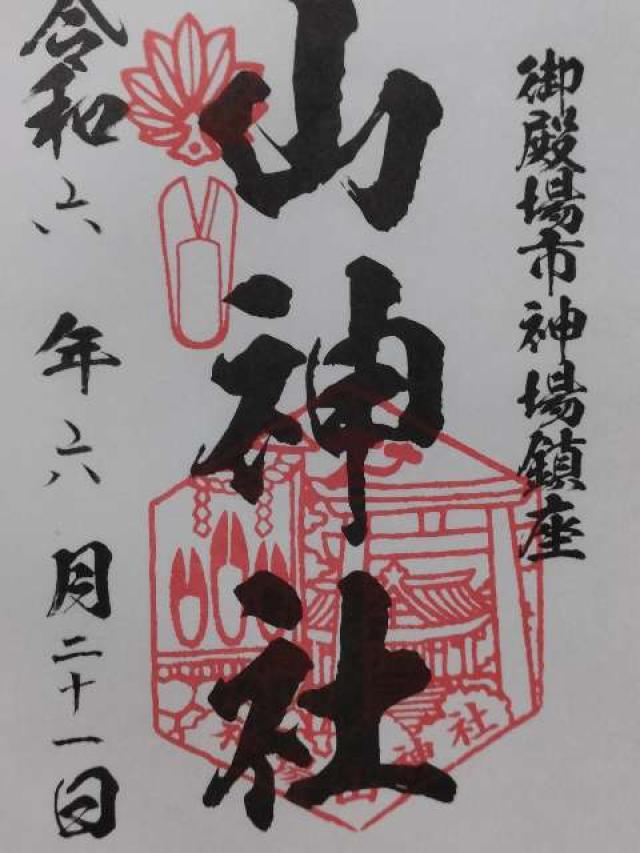 御殿場市神場鎮座
山神社
令和六年六月二十一日
神場山神社